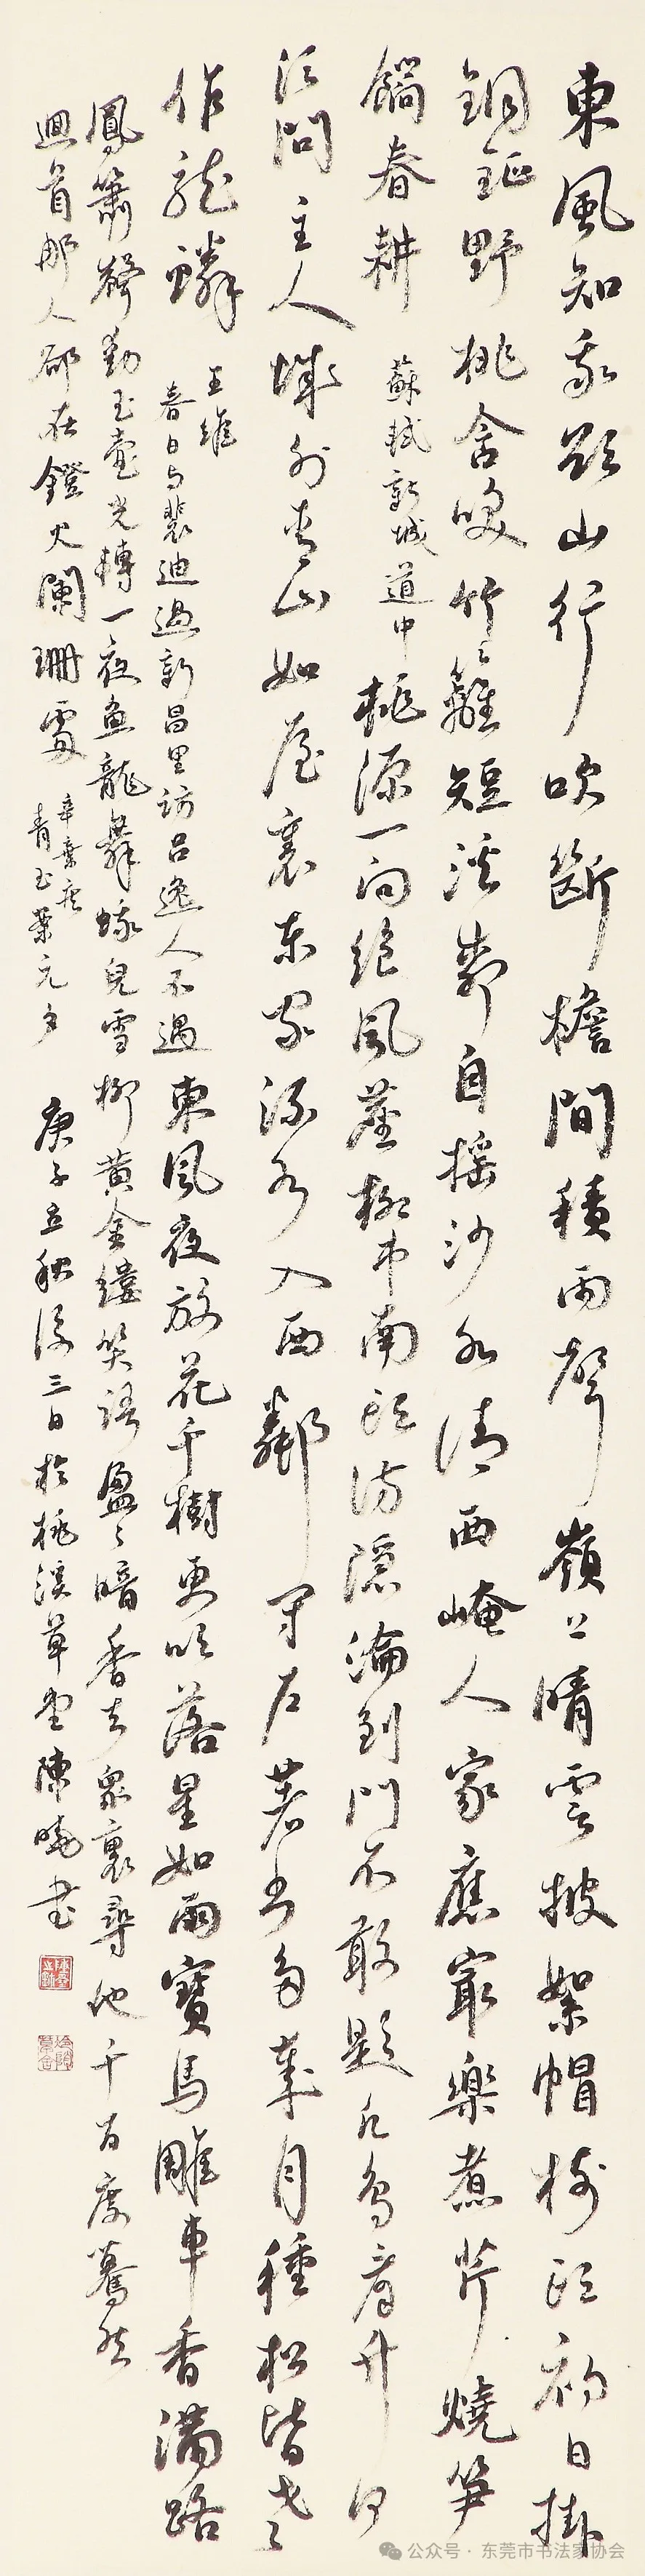 東風知我欲山行吹斷檐間積雨聲嶺上晴雲披絮帽樹頭初日掛
銅鉦野桃含笑竹籬短溪柳自搖沙水清西崦人家應最樂煮芹燒笋
餉春耕 蘇軾新城道中 桃源一向絕風塵柳市南頭訪隱淪到門不敢題凡鳥看竹何
須問主人城外青山如屋裏東家流水入西鄰閉户著書多歲月種松皆老
作龍鱗 王維
春日与裴迪過新昌里訪呂逸人不遇 東風夜放花千樹更吹落星如雨寶馬雕車香滿路
鳳簫聲動玉壺光轉一夜魚龍舞蛾兒雪柳黃金縷笑語盈々暗香去眾裏尋他千百度驀然
迴首那人卻在鐙火闌珊處 辛棄疾
青玉案元夕 庚子立秋後三日於桃溪草堂陳曉書
公众号·东莞市书法家协会